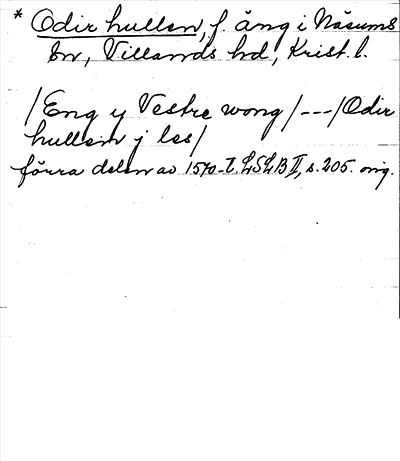 * Odir hullen, f. äng i Näsums
sn, Villands hd, Krist. l.
/Eng y Vestre wong/---/Odir
hullen j les/
förra delen av 1570-t. LSLB II, s. 205. orig.